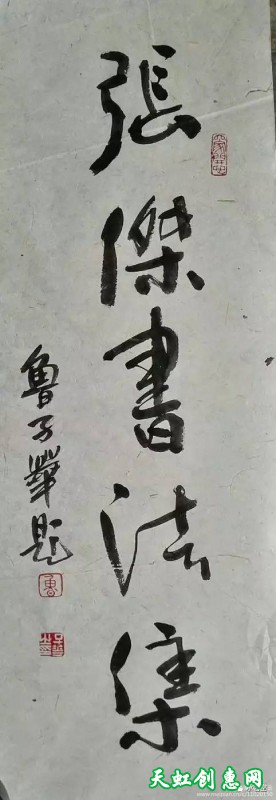 張傑書法集
魯子華題
天虹创惠网